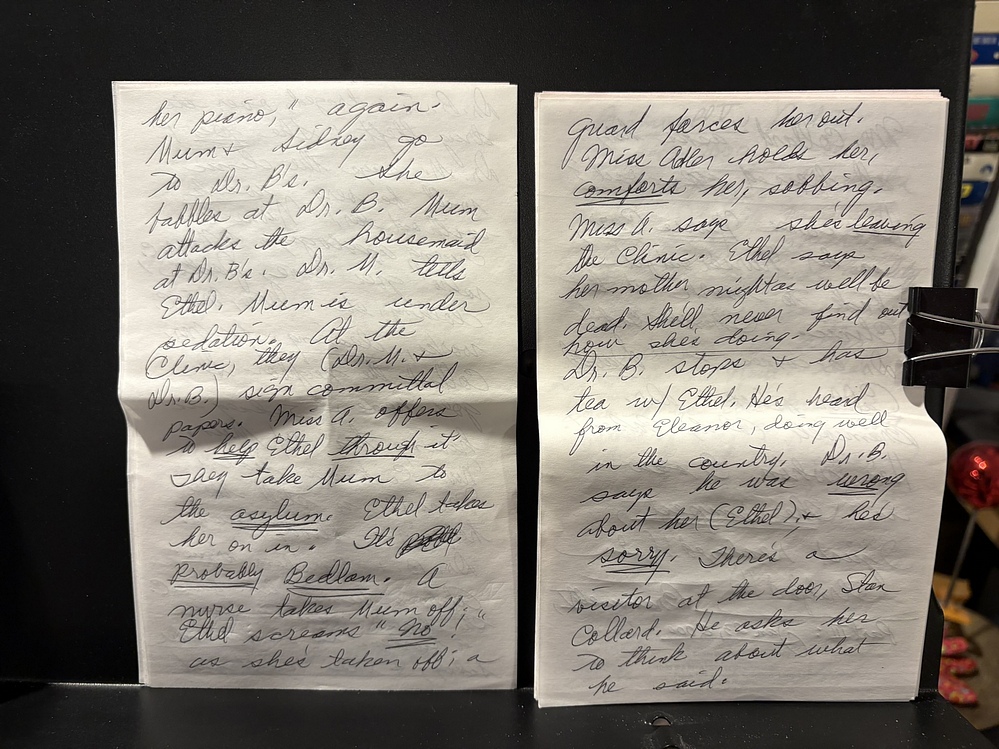 her piano," again.
Mum & Sidney go
to Dr. B's. She
babbles at Dr. B. Mum
attacks the housemaid
at Dr. B's. Dr. M. tells
Ethel. Mum is under
sedation. At the
Clinic, they (Dr. M. &
Dr. B.) sign committal
papers. Miss A. offers
to help Ethel through it.
They take Mum to
the asylum. Ethel takes
her on in. It's
probably Bedlam. A
nurse takes Mum off;
Ethel screams "No!"
as she's taken off; a
guard forces her out.
Miss Adler holds her,
comforts her, sobbing.
Miss A. says she's leaving
the Clinic. Ethel says
her mother might as well be
dead. She'll never find out
how she's doing.
Dr. B. stops & has
tea w/ Ethel. He's heard
from Eleanor, doing well
in the country. Dr. B.
says he was wrong
about her (Ethel), & he's
sorry. There's a
visitor at the door, Stan
Collard. He asks her
to think about what
he said.